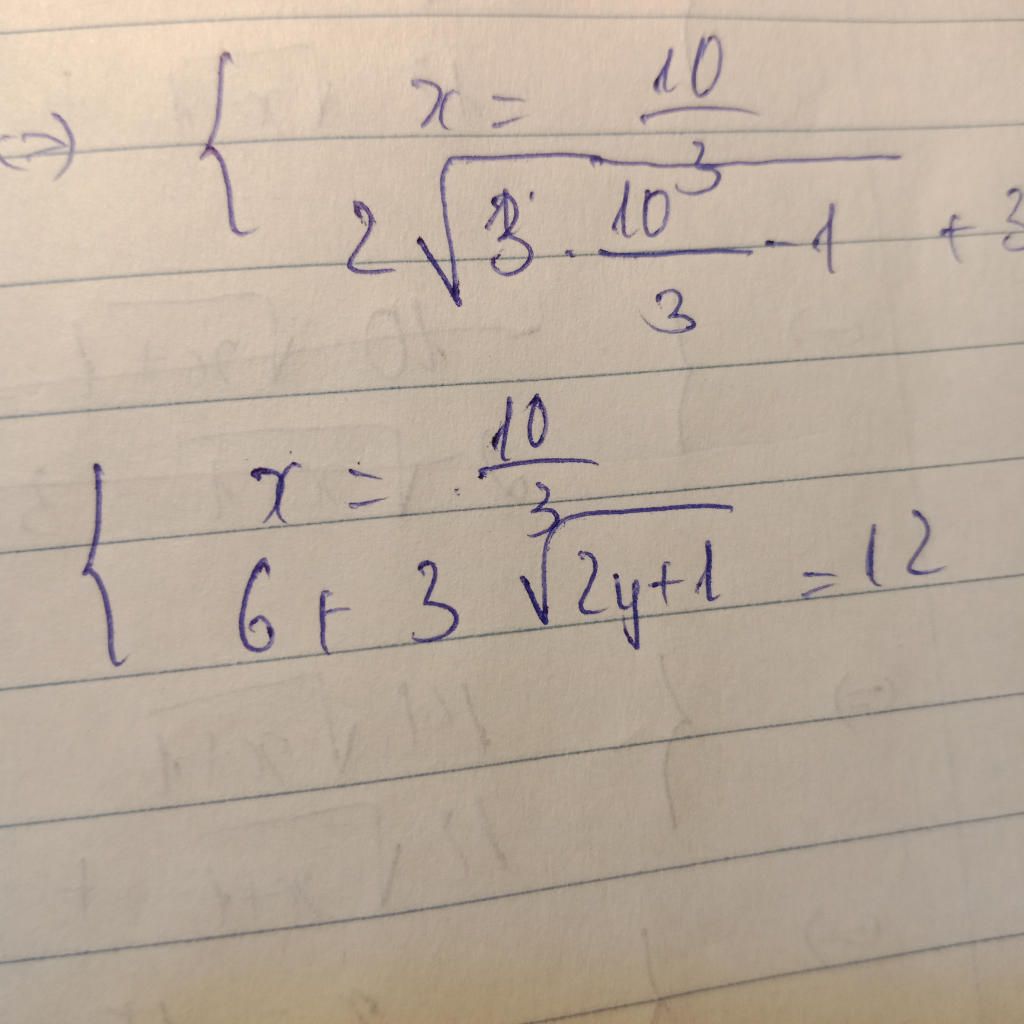 ⇔ { x = 10/3
2√(3 · 10/3 - 1) + 3
{ x = 10/3
6 + 3 ∛(2y+1) = 12